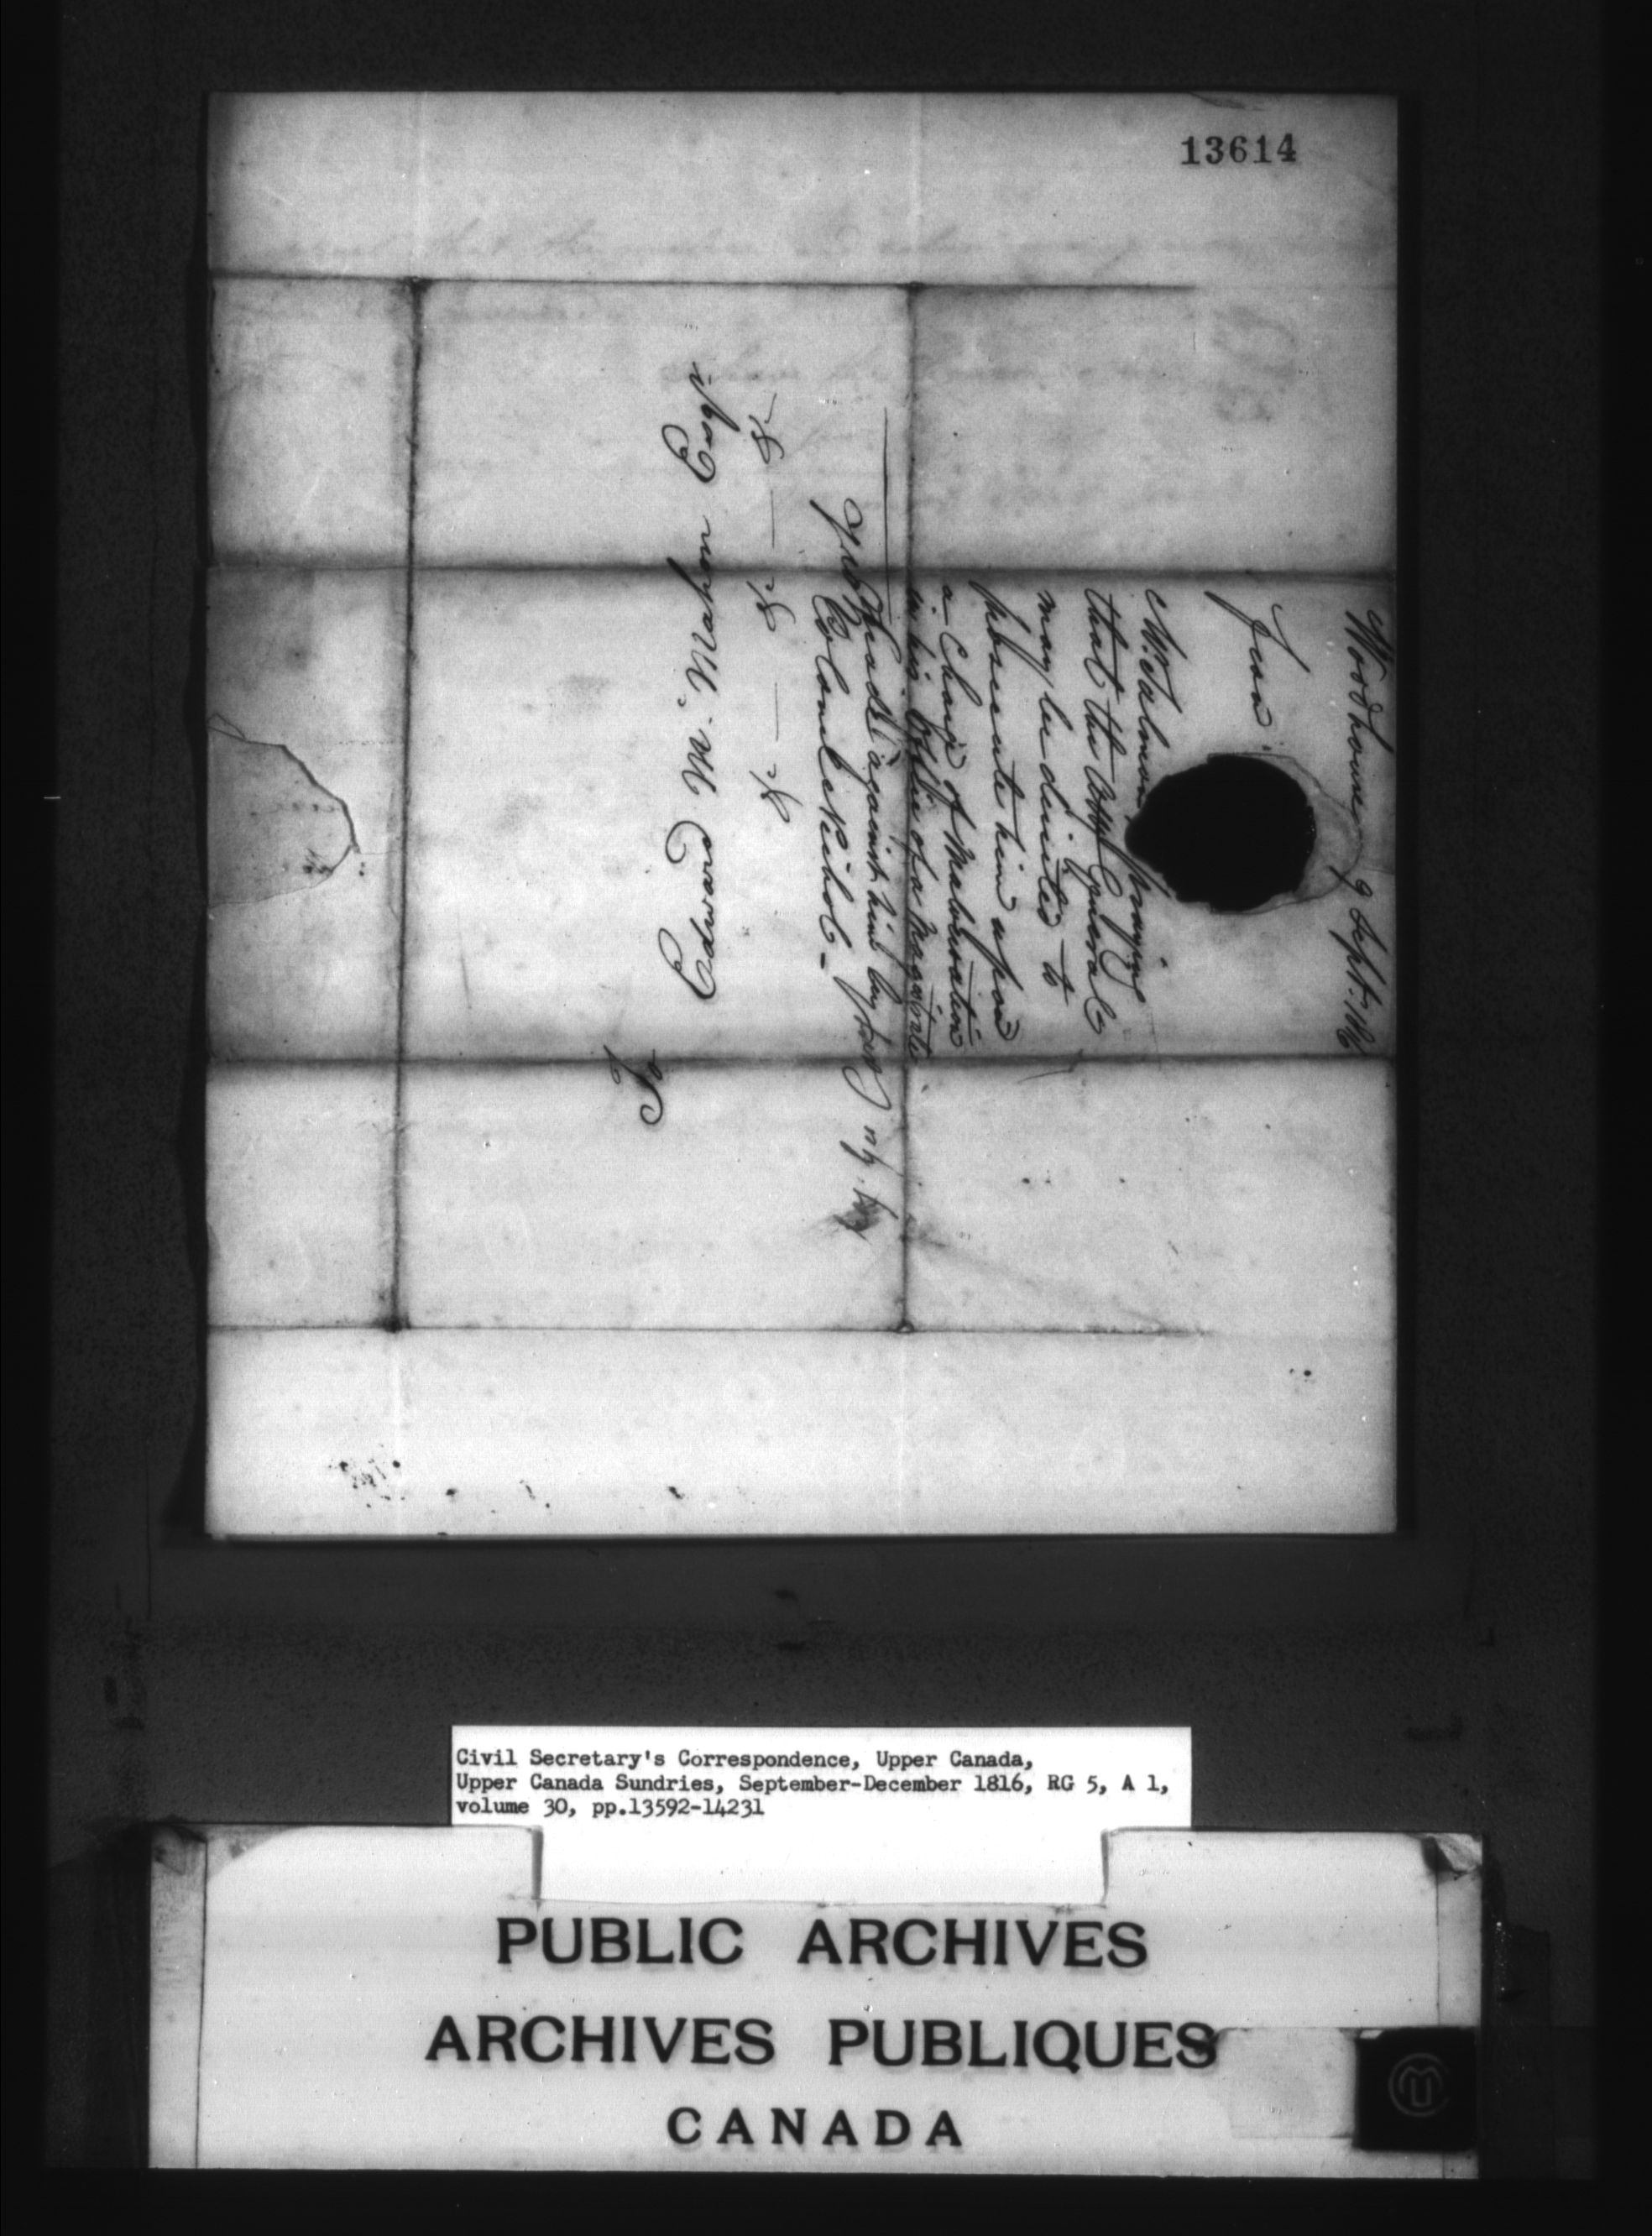 13614
Woodhouse 9 Sept: 1816
From
Mr. Salmon praying
that the Atty General
may be directed to
prosecute him upon
a Charge of Malversation
in his Office of a Magistrate
made against him by
Colonel Nichol -
To
Edward McMahon Esqr
&c — &c — &c
York
Civil Secretary's Correspondence, Upper Canada,
Upper Canada Sundries, September-December 1816, RG 5, A 1,
volume 30, pp.13592-14231
PUBLIC ARCHIVES
ARCHIVES PUBLIQUES
CANADA